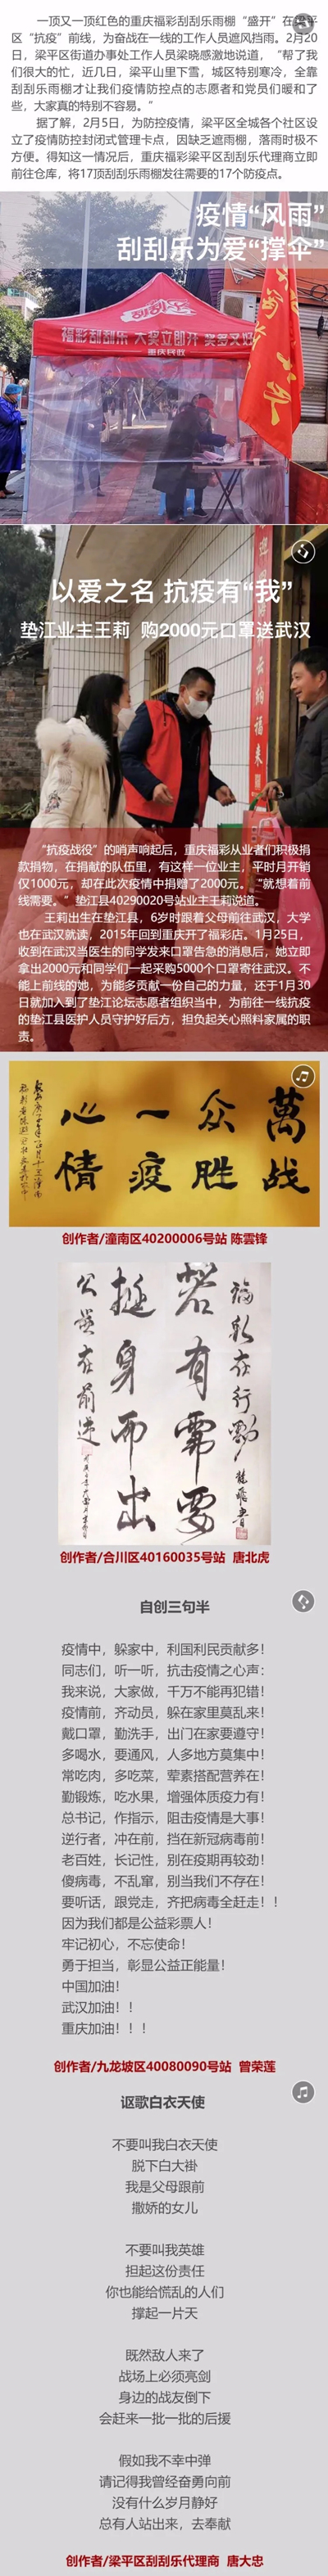 一顶又一顶红色的重庆福彩刮刮乐雨棚“盛开”在梁平
区“抗疫”前线，为奋战在一线的工作人员遮风挡雨。2月20
日，梁平区街道办事处工作人员梁晓感激地说道，“帮了我
们很大的忙，近几日，梁平山里下雪，城区特别寒冷，全靠
刮刮乐雨棚才让我们疫情防控点的志愿者和党员们暖和了
些，大家真的特别不容易。”
据了解，2月5日，为防控疫情，梁平区全城各个社区设
立了疫情防控封闭式管理卡点，因缺乏遮雨棚，落雨时极不
方便。得知这一情况后，重庆福彩梁平区刮刮乐代理商立即
前往仓库，将17顶刮刮乐雨棚发往需要的17个防疫点。
疫情“风雨”
刮刮乐为爱“撑伞”
刮刮乐
福彩刮刮乐 大奖立即开 奖多又好
重庆民政
以爱之名 抗疫有“我”
垫江业主王莉 购2000元口罩送武汉
“抗疫战役”的哨声响起后，重庆福彩从业者们积极捐
款捐物，在捐献的队伍里，有这样一位业主，平时月开销
仅1000元，却在此次疫情中捐赠了2000元。“就想着前
线需要。”垫江县40290020号站业主王莉说道。
王莉出生在垫江县，6岁时跟着父母前往武汉，大学
也在武汉就读，2015年回到重庆开了福彩店。1月25日，
收到在武汉当医生的同学发来口罩告急的消息后，她立即
拿出2000元和同学们一起采购5000个口罩寄往武汉。不
能上前线的她，为能多贡献一份自己的力量，还于1月30
日就加入到了垫江论坛志愿者组织当中，为前往一线抗疫
的垫江县医护人员守护好后方，担负起关心照料家属的职
责。
萬众一心
战胜疫情
创作者/潼南区40200006号站 陈雲锋
福彩在行动
若有需要
挺身而出
公益在前进
创作者/合川区40160035号站 唐北虎
自创三句半
疫情中，躲家中，利国利民贡献多！
同志们，听一听，抗击疫情之心声：
我来说，大家做，千万不能再犯错！
疫情前，齐动员，躲在家里莫乱来！
戴口罩，勤洗手，出门在家要遵守！
多喝水，要通风，人多地方莫集中！
常吃肉，多吃菜，荤素搭配营养在！
勤锻炼，吃水果，增强体质疫力有！
总书记，作指示，阻击疫情是大事！
逆行者，冲在前，挡在新冠病毒前！
老百姓，长记性，别在疫期再较劲！
傻病毒，不乱窜，别当我们不存在！
要听话，跟党走，齐把病毒全赶走！！
因为我们都是公益彩票人！
牢记初心，不忘使命！
勇于担当，彰显公益正能量！
中国加油！
武汉加油！！
重庆加油！！！
创作者/九龙坡区40080090号站 曾荣莲
讴歌白衣天使
不要叫我白衣天使
脱下白大褂
我是父母跟前
撒娇的女儿
不要叫我英雄
担起这份责任
你也能给慌乱的人们
撑起一片天
既然敌人来了
战场上必须亮剑
身边的战友倒下
会赶来一批一批的后援
假如我不幸中弹
请记得我曾经奋勇向前
没有什么岁月静好
总有人站出来，去奉献
创作者/梁平区刮刮乐代理商 唐大忠